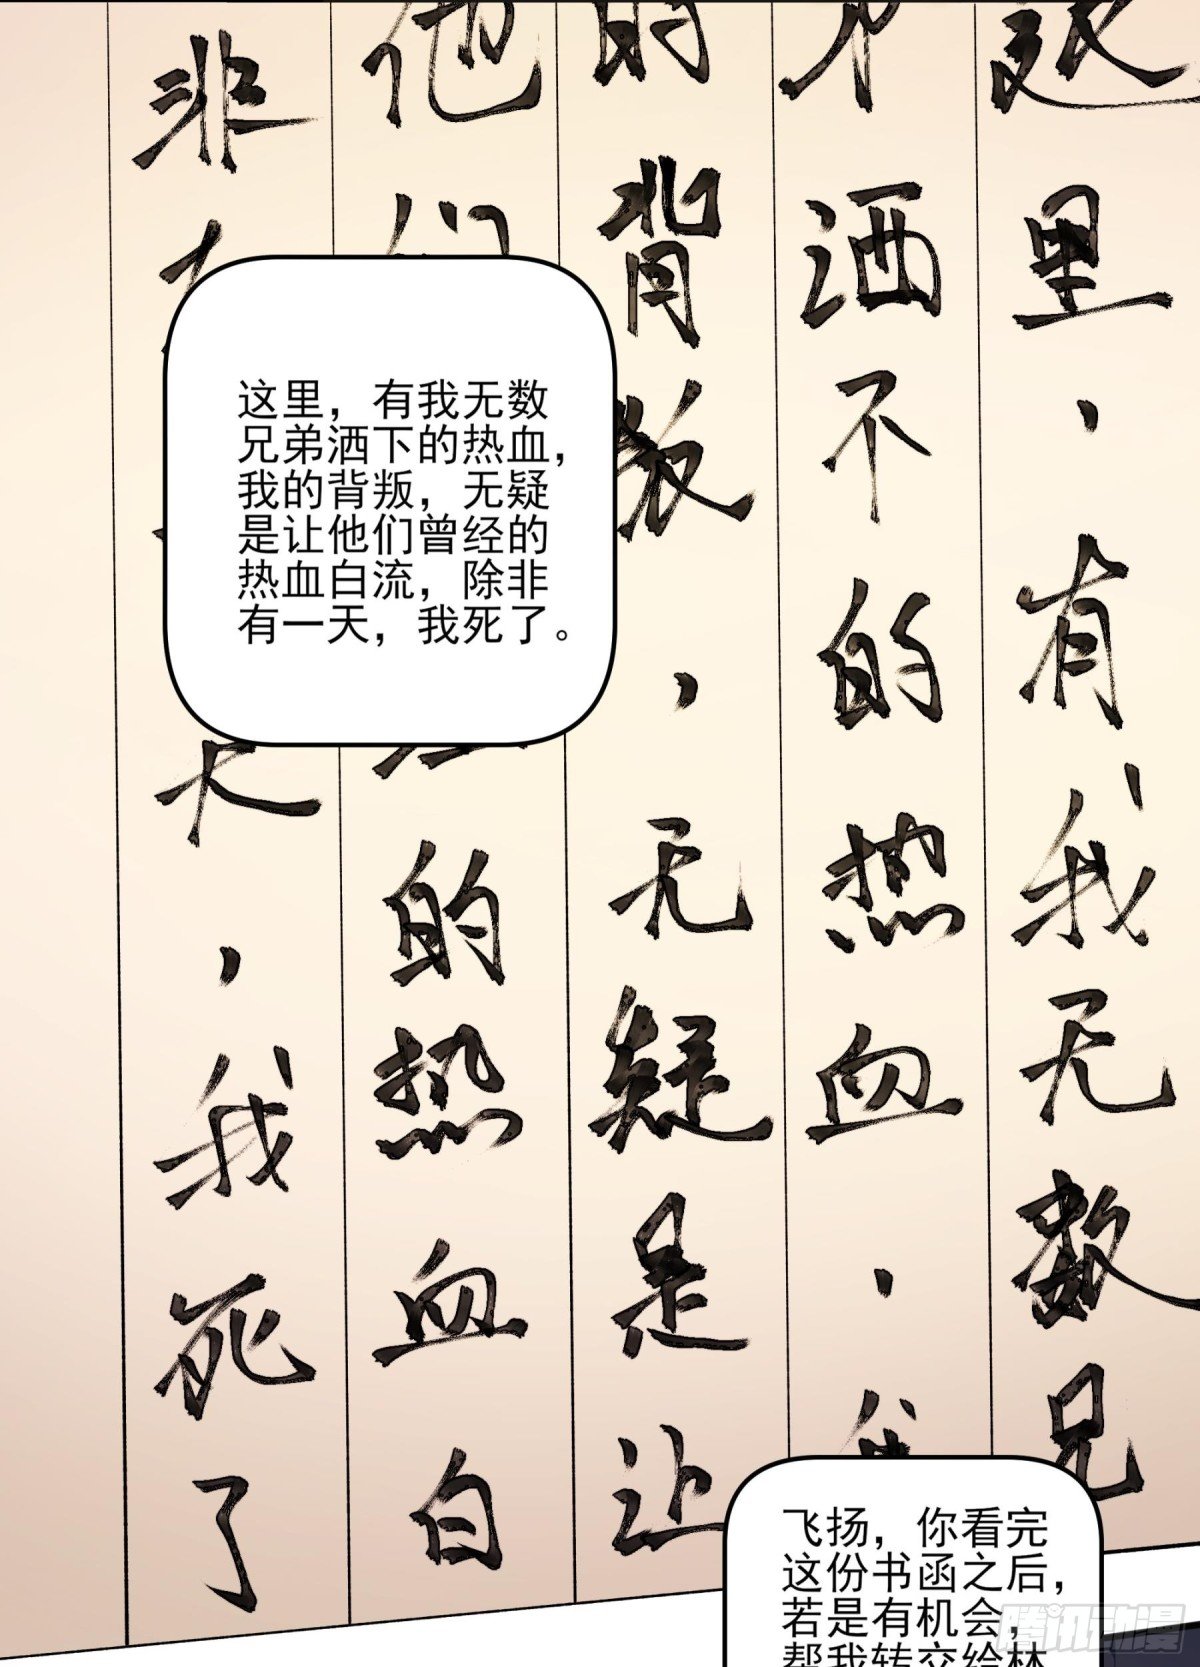 这里，有我无数兄
不洒不的热血，我
的背叛，无疑是让
他们
的热血白
非
天，我死了
这里，有我无数
兄弟洒下的热血，
我的背叛，无疑
是让他们曾经的
热血白流，除非
有一天，我死了。
飞扬，你看完
这份书函之后，
若是有机会，
帮我转交给林
腾讯动漫